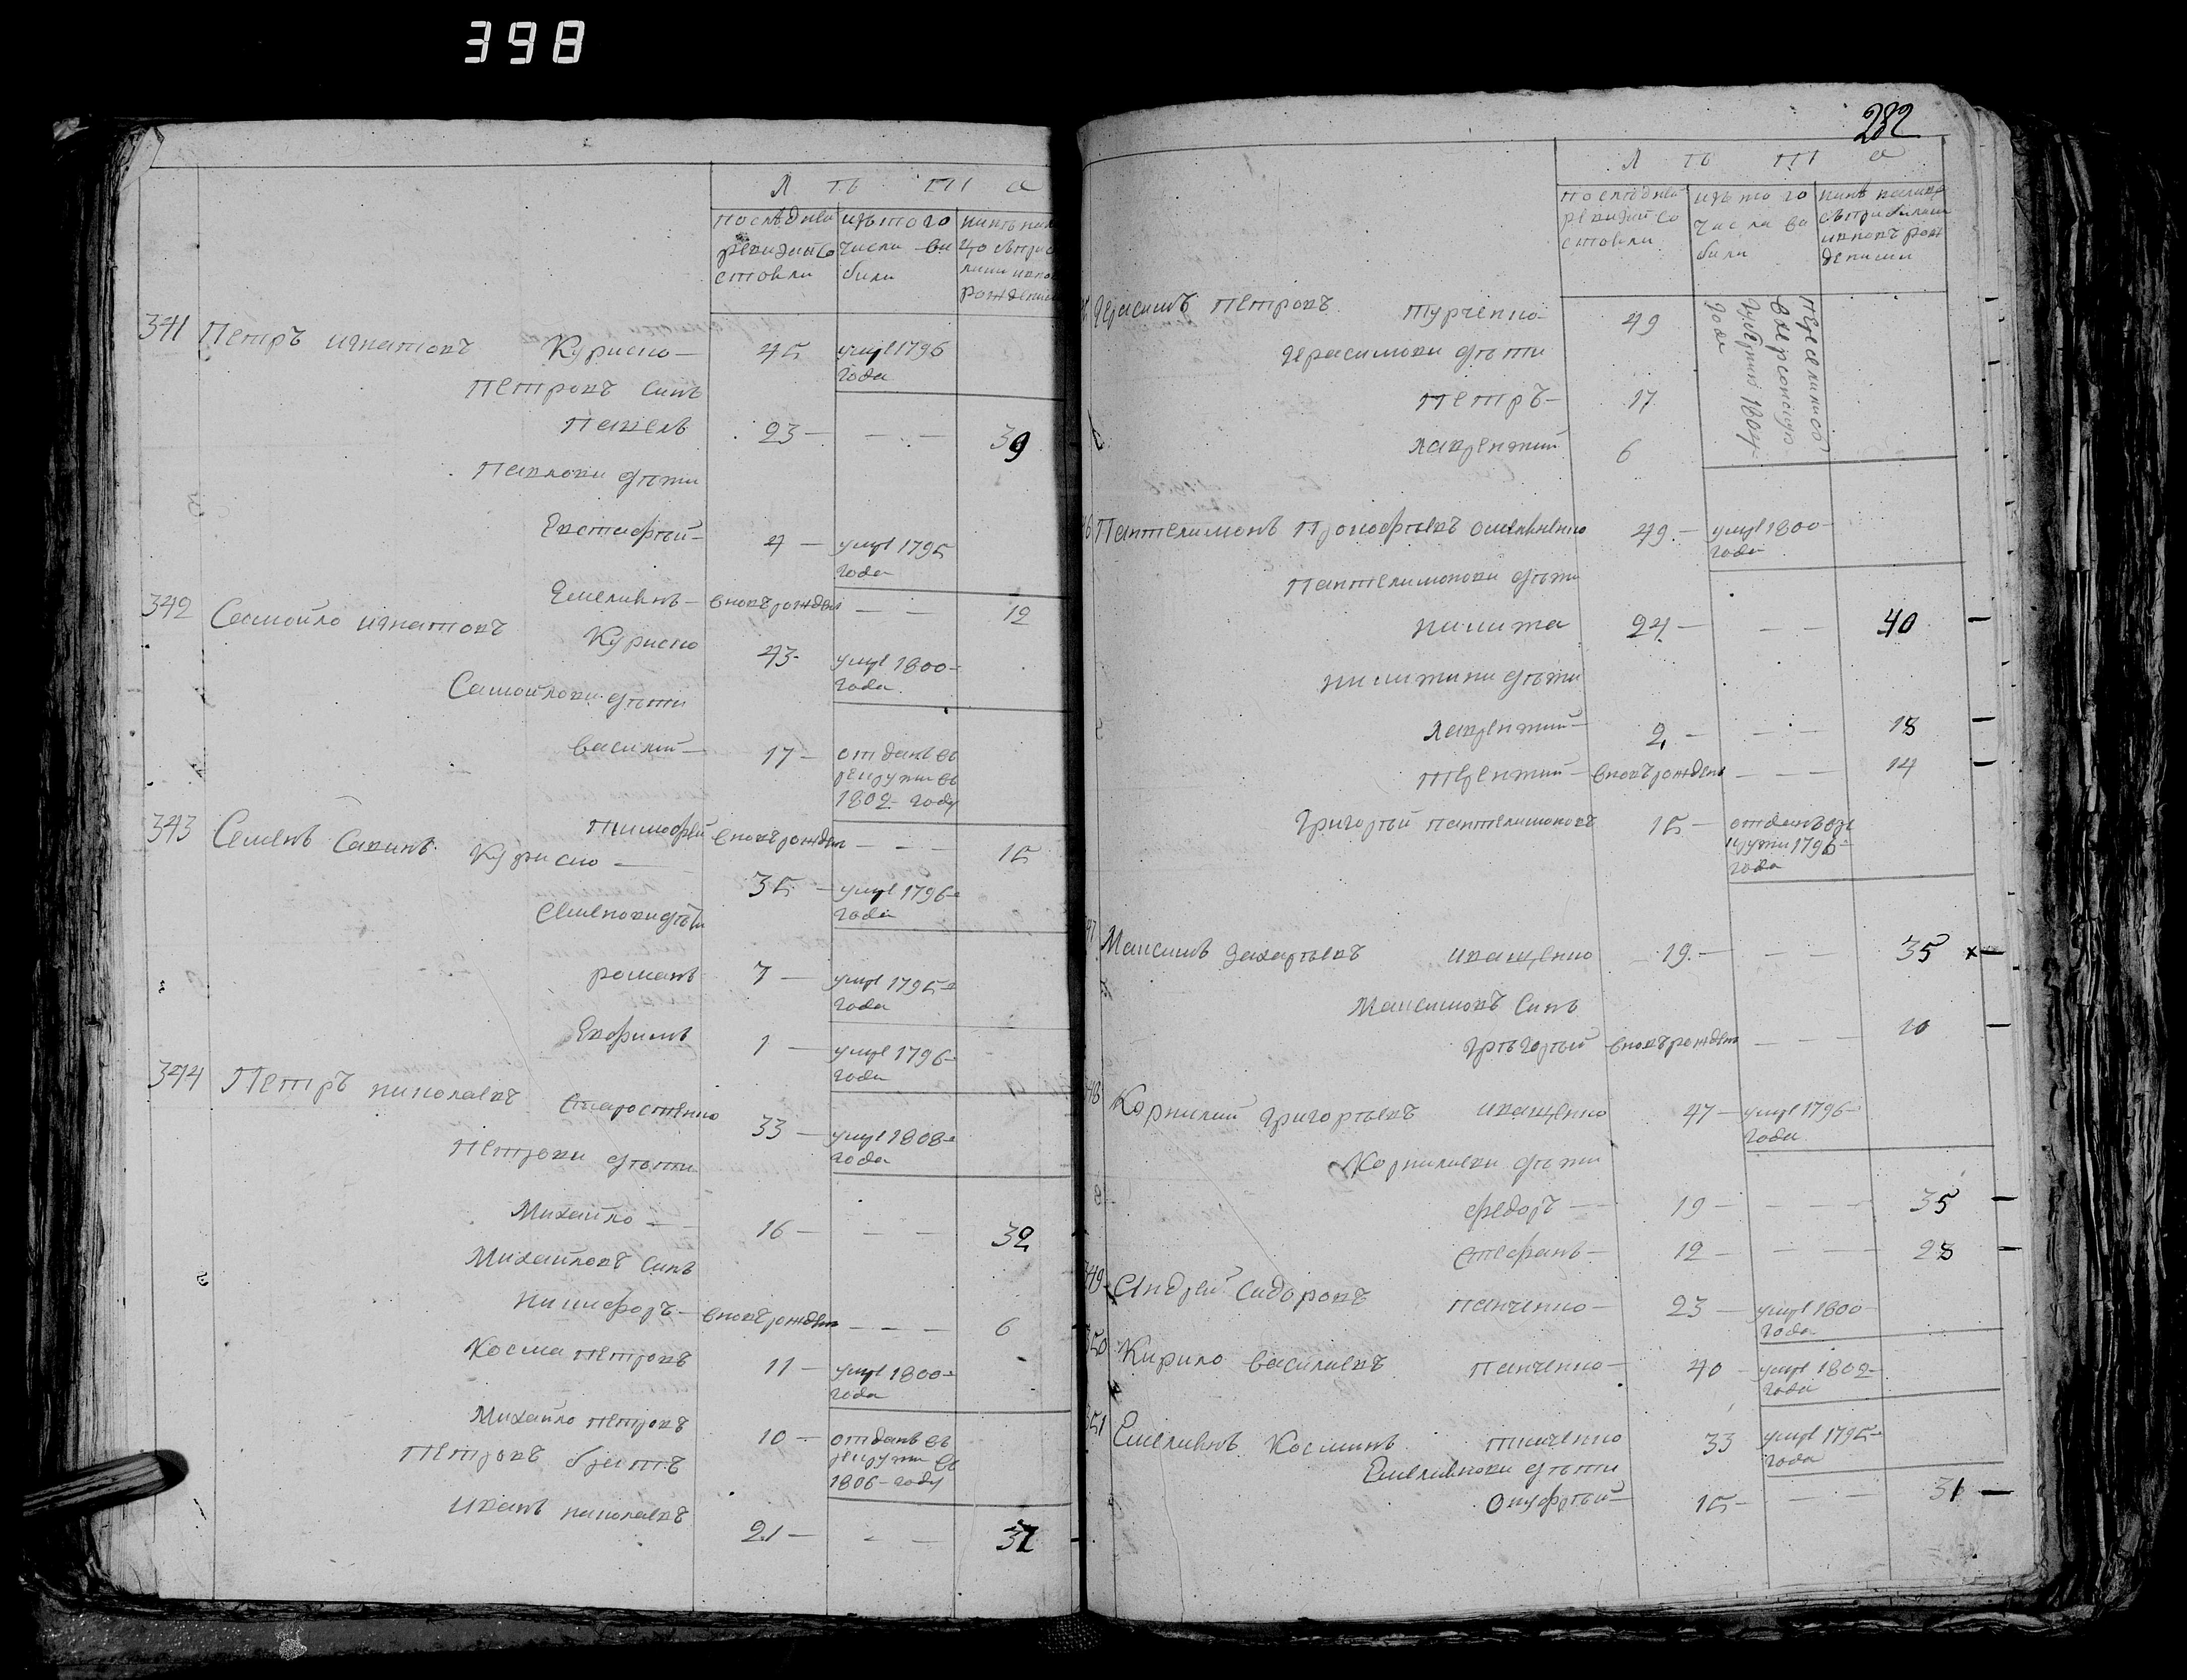 398
Л ѣ т а
последней изъ того
ревизии со числа вы
стояли были рождения
341 Петръ игнатовъ Куриско 45 умре 1796
года
Петровъ сынъ
Павелъ 23 — — 39
Павловы дѣти
Евстафѣй 4 — умре 1795
года
Емельянъ — вновь рожден — — 12
342 Самойло игнатовъ Куриско 43 умре 1800
года
Самойловы дѣти
василий — 17 — отданъ въ
рекруты въ
1802 году
Тимофей вновь рожден — — — 15
343 Семенъ Савинъ Куриско — 35 — умре 1796
года
Семеновы дѣти
романъ 7 — умре 1795
года
Евфимъ 1 — умре 1796
года
344 Петръ николаевъ Старостенко 33 — умре 1808
года
Петровы дѣти
Михайло — 16 — — — 32
Михайловъ сынъ
никифоръ — вновь рожден — — — 6
Косма петровъ 11 — умре 1800
года
Михайло петровъ 10 — отданъ въ
рекруты въ
1806 году
Петровъ братъ
иванъ николаевъ 21 — — — 37
282
Л ѣ т а
последней изъ того
ревизии со числа вы
стояли были
Герасимъ Петровъ Турченко 49
Переселились
в херсонскую
губернию 1804
года
Герасимовы дѣти
Петръ — 17
лаврентий 6
Пантелимонъ Прокофьевъ Омельченко 49 — умре 1800
года
Пантелимоновы дѣти
никита 24 — — — 40
никитины дѣти
лаврентий — 2 — — — 18
терентий — вновь рожден — — — 14
Григорѣй пантелимоновъ 15 — отданъ въ ре
круты 1796
года
Максимъ Захарьевъ иващенко 19 — — — 35 х
Максимовъ сынъ
григорѣй вновь рожден — — — 10
Корнилий Григорьевъ иващенко 47 — умре 1796
года
Корнилиевы дѣти
федоръ — 19 — — — 35
Стефанъ — 12 — — — 28
349 Андрей Сидоровъ панченко — 23 — умре 1800
года
350 Кирило васильевъ панченко — 40 — умре 1802
года
351 Емельянъ Косминъ 33 умре 1795
года
Емельяновы дѣти
Онуфрѣй — 15 — — — 31